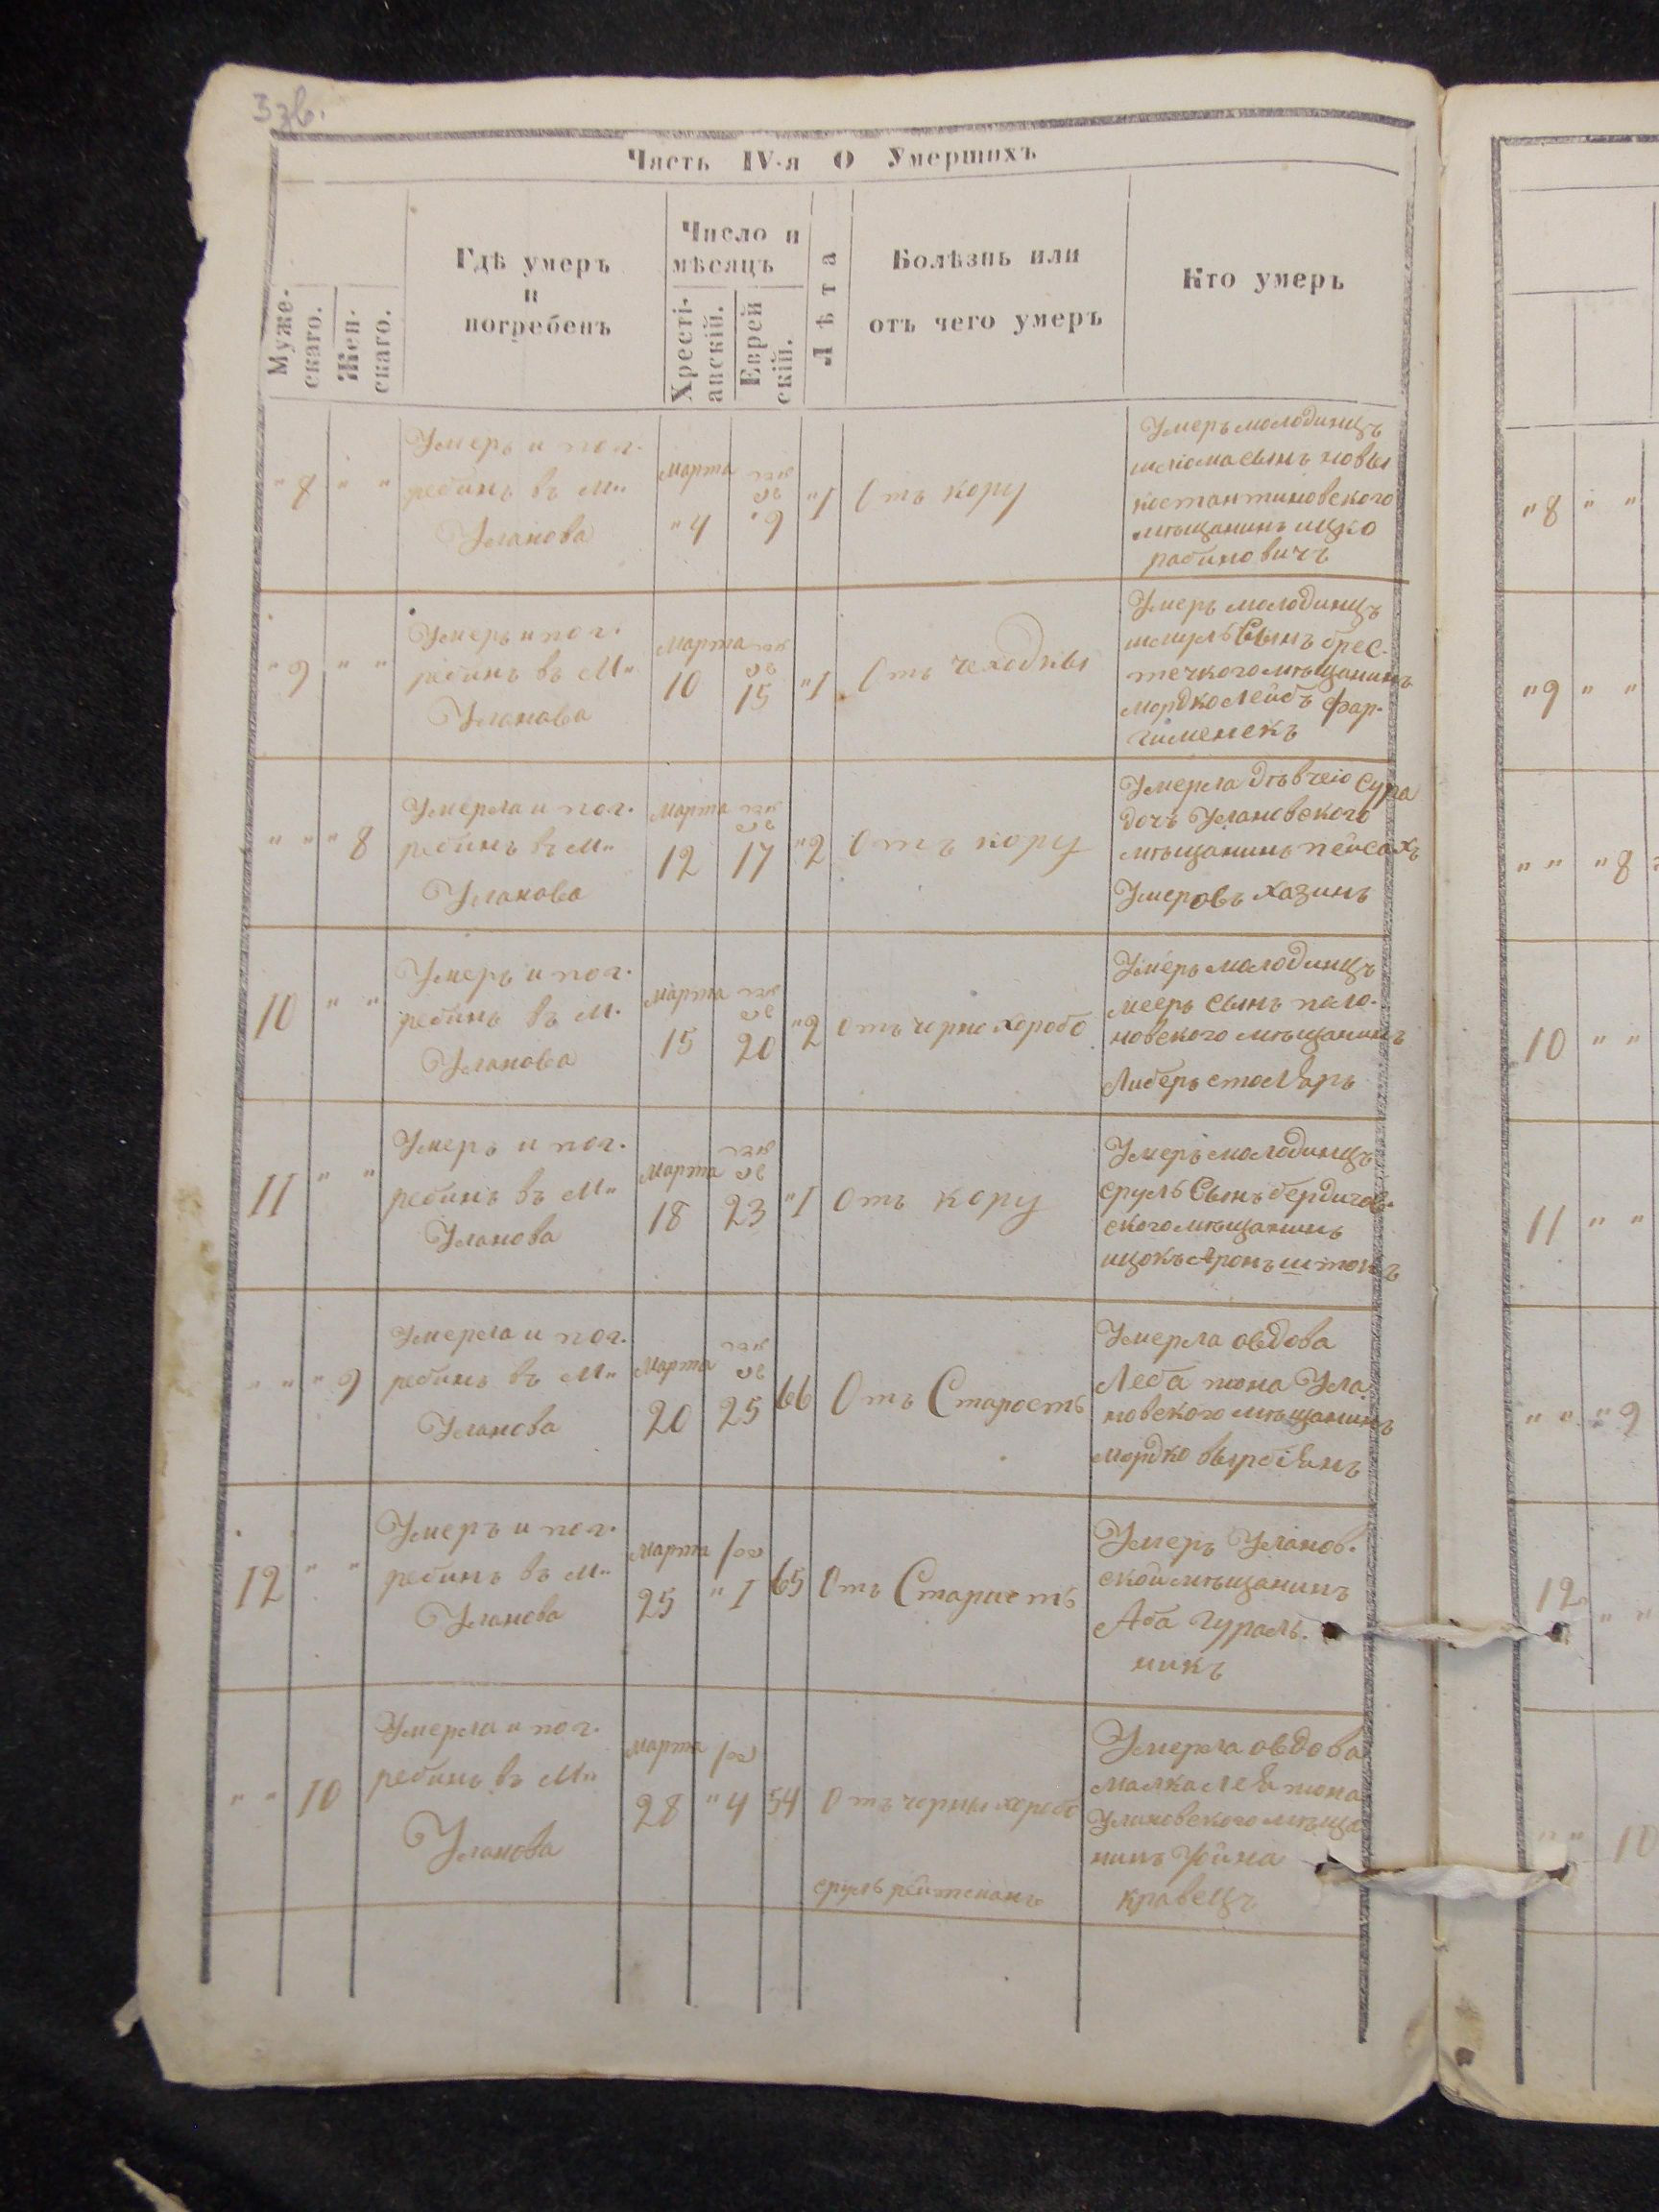 33б.
Часть IV-я О Умершихъ
Муже-
скаго.
Жен-
скаго.
Гдѣ умеръ
и
погребенъ
Число и
мѣсяцъ
Хрестi-
анскiй.
Еврей
скiй.
Лѣта
Болѣзнь или
отъ чего умеръ
Кто умеръ
"8 " "
Умеръ и пог.
ребинъ въ М"
Уланова
Марта
"4
6.
"1
Отъ кору
Умеръ молодинцъ
шлiома сынъ новы
костантиновского
мѣщанинъ ицко
рабиновичъ
"9 " "
Умеръ и пог.
ребинъ въ М"
Уланова
Марта
10
15
"1
Отъ чеходкы
Умеръ молодинцъ
шмулъ Сынъ брес-
течкого мѣщанинъ
мордко лейбъ фар-
гименекъ
" " "8
Умерла и пог.
ребинъ въ М"
Уланова
Марта
12
17
"2
Отъ кору
Умерла дѣвчею Сура
дочъ Улановского
мѣщанинъ пейсахъ
Умеровъ хазинъ
10 " "
Умеръ и пог.
ребинъ въ М.
Уланова
Марта
15
20
"2
Отъ черно хоробо
Умеръ молодинцъ
мееръ сынъ поло-
новского мѣщанинъ
Либеръ столяръ
11 " "
Умеръ и пог.
ребинъ въ М"
Уланова
Марта
18
23
"1
Отъ кору
Умеръ молодинцъ
срулъ Сынъ бердичов-
ского мѣщанинъ
ицокъ Аронъ
" " "9
Умерла и пог.
ребинъ въ М"
Уланова
Марта
20
25
66
Отъ Старостъ
Умерла овдова
Леба жона Ула
новского мѣщанинъ
мордко
12 " "
Умеръ и пог.
ребинъ въ М"
Уланова
Марта
25
"1
65
Отъ Старостъ
Умеръ Уланов.
скои мѣщанинъ
Аба Гураль.
никъ
" " 10
Умерла и пог.
ребинъ въ М"
Уланова
Марта
28
"4
54
Отъ черны хоробо
Умерла овдова
малка лея жона
Улановского мѣща
нинъ Иойна
кравецъ
сруль рейтманъ
"8 " "
"9 " "
" " "8
10 " "
11 " "
" " "9
12 " "
" " 10